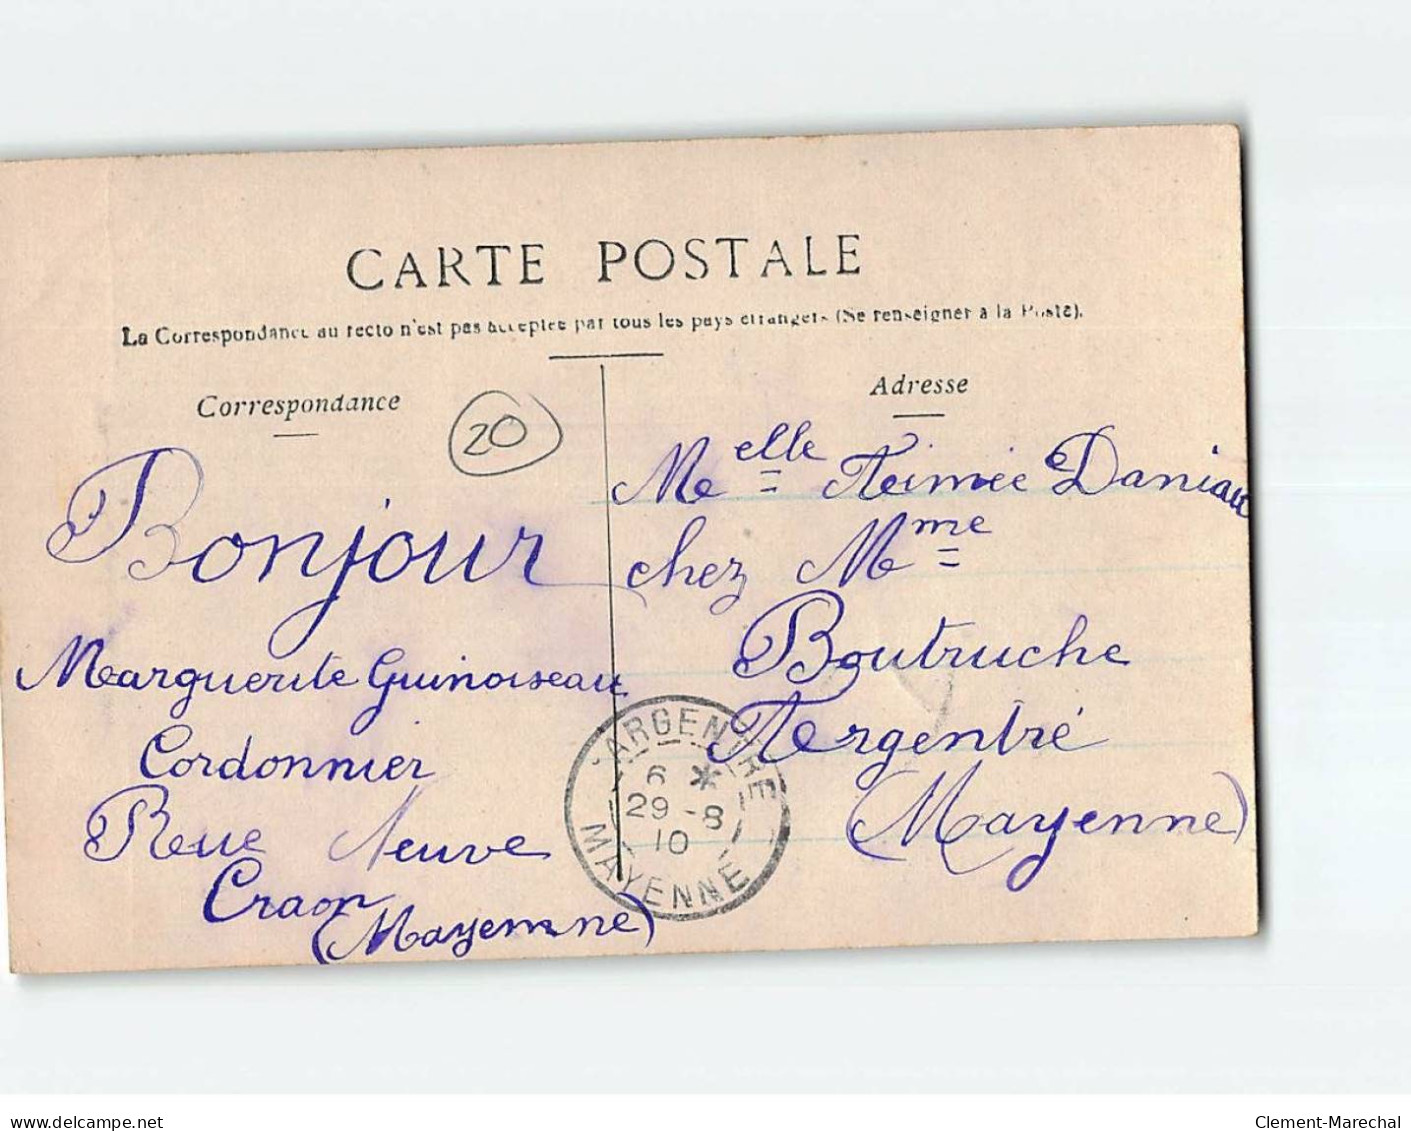 CARTE POSTALE
La Correspondance au recto n'est pas acceptée par tous les pays étrangers (Se renseigner à la Poste).
Correspondance
20
Bonjour
Marguerite Guinoiseau
Cordonnier
Rue Neuve
Craon
(Mayenne)
Adresse
Melle Aimée Daniau
chez Mme
Boutruche
Argentré
(Mayenne)
ARGENTRE
6 *
29-8
10
MAYENNE
www.delcampe.net
Clement-Marechal